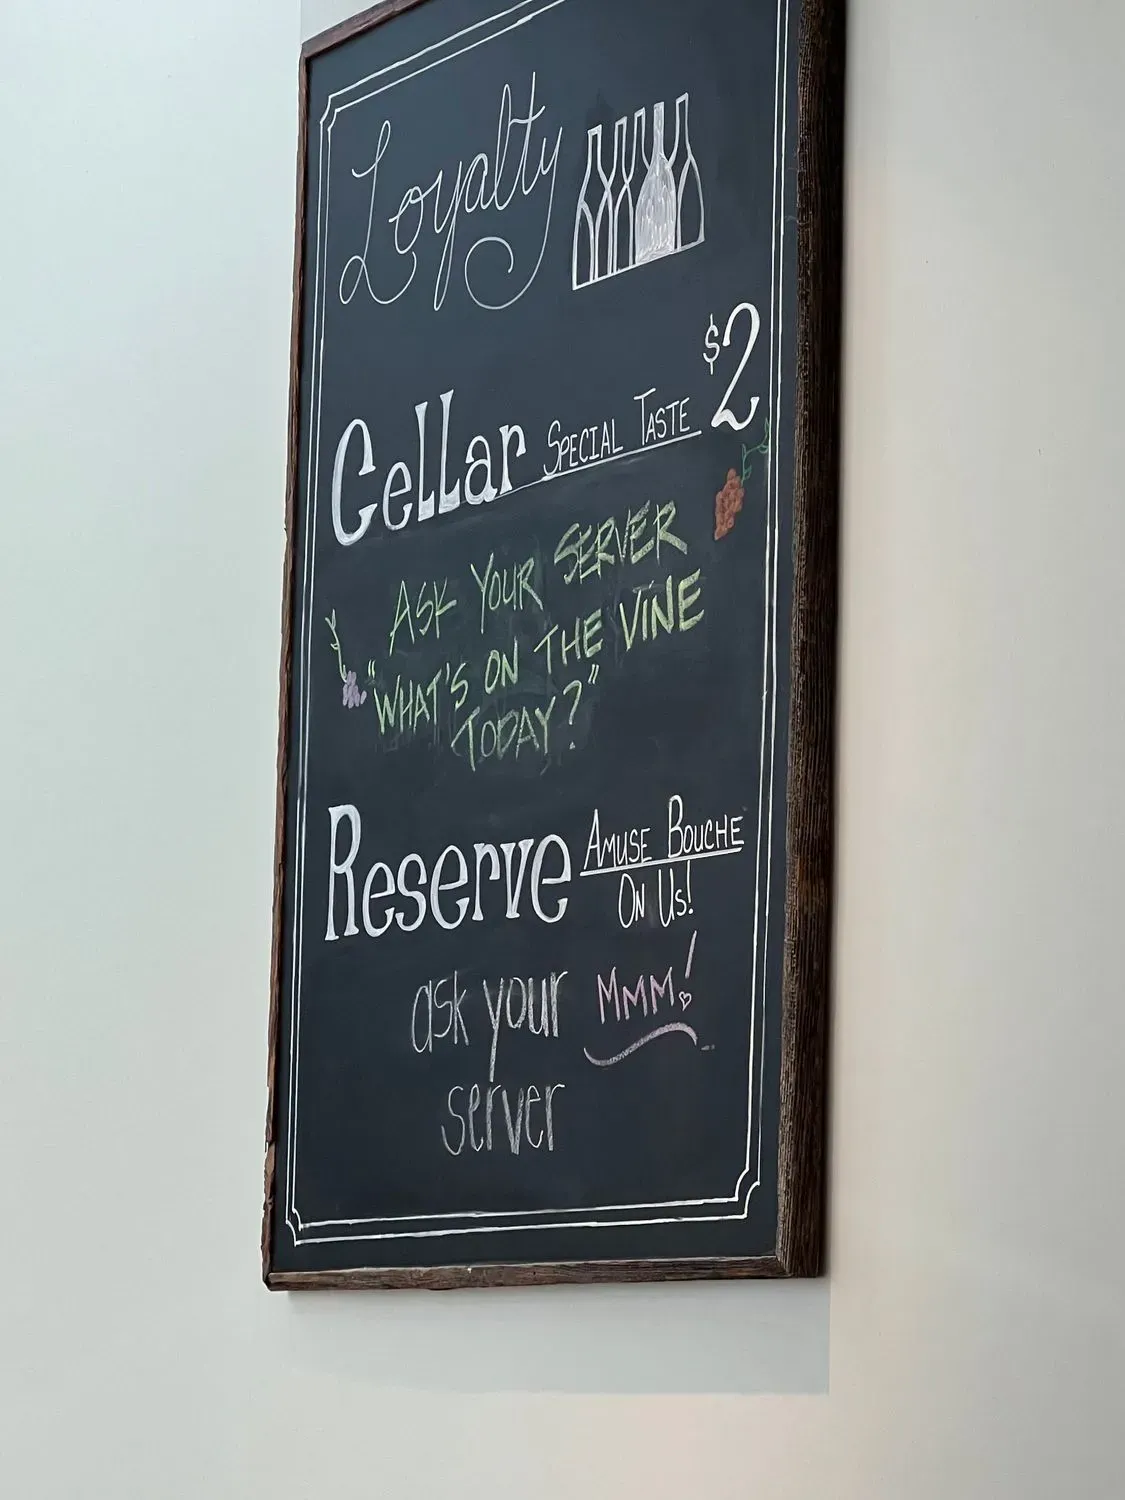 Loyalty
Cellar SPECIAL TASTE $2
ASK YOUR SERVER
"WHAT'S ON THE VINE
TODAY?"
Reserve AMUSE BOUCHE
ON US!
ask your MMM!
server